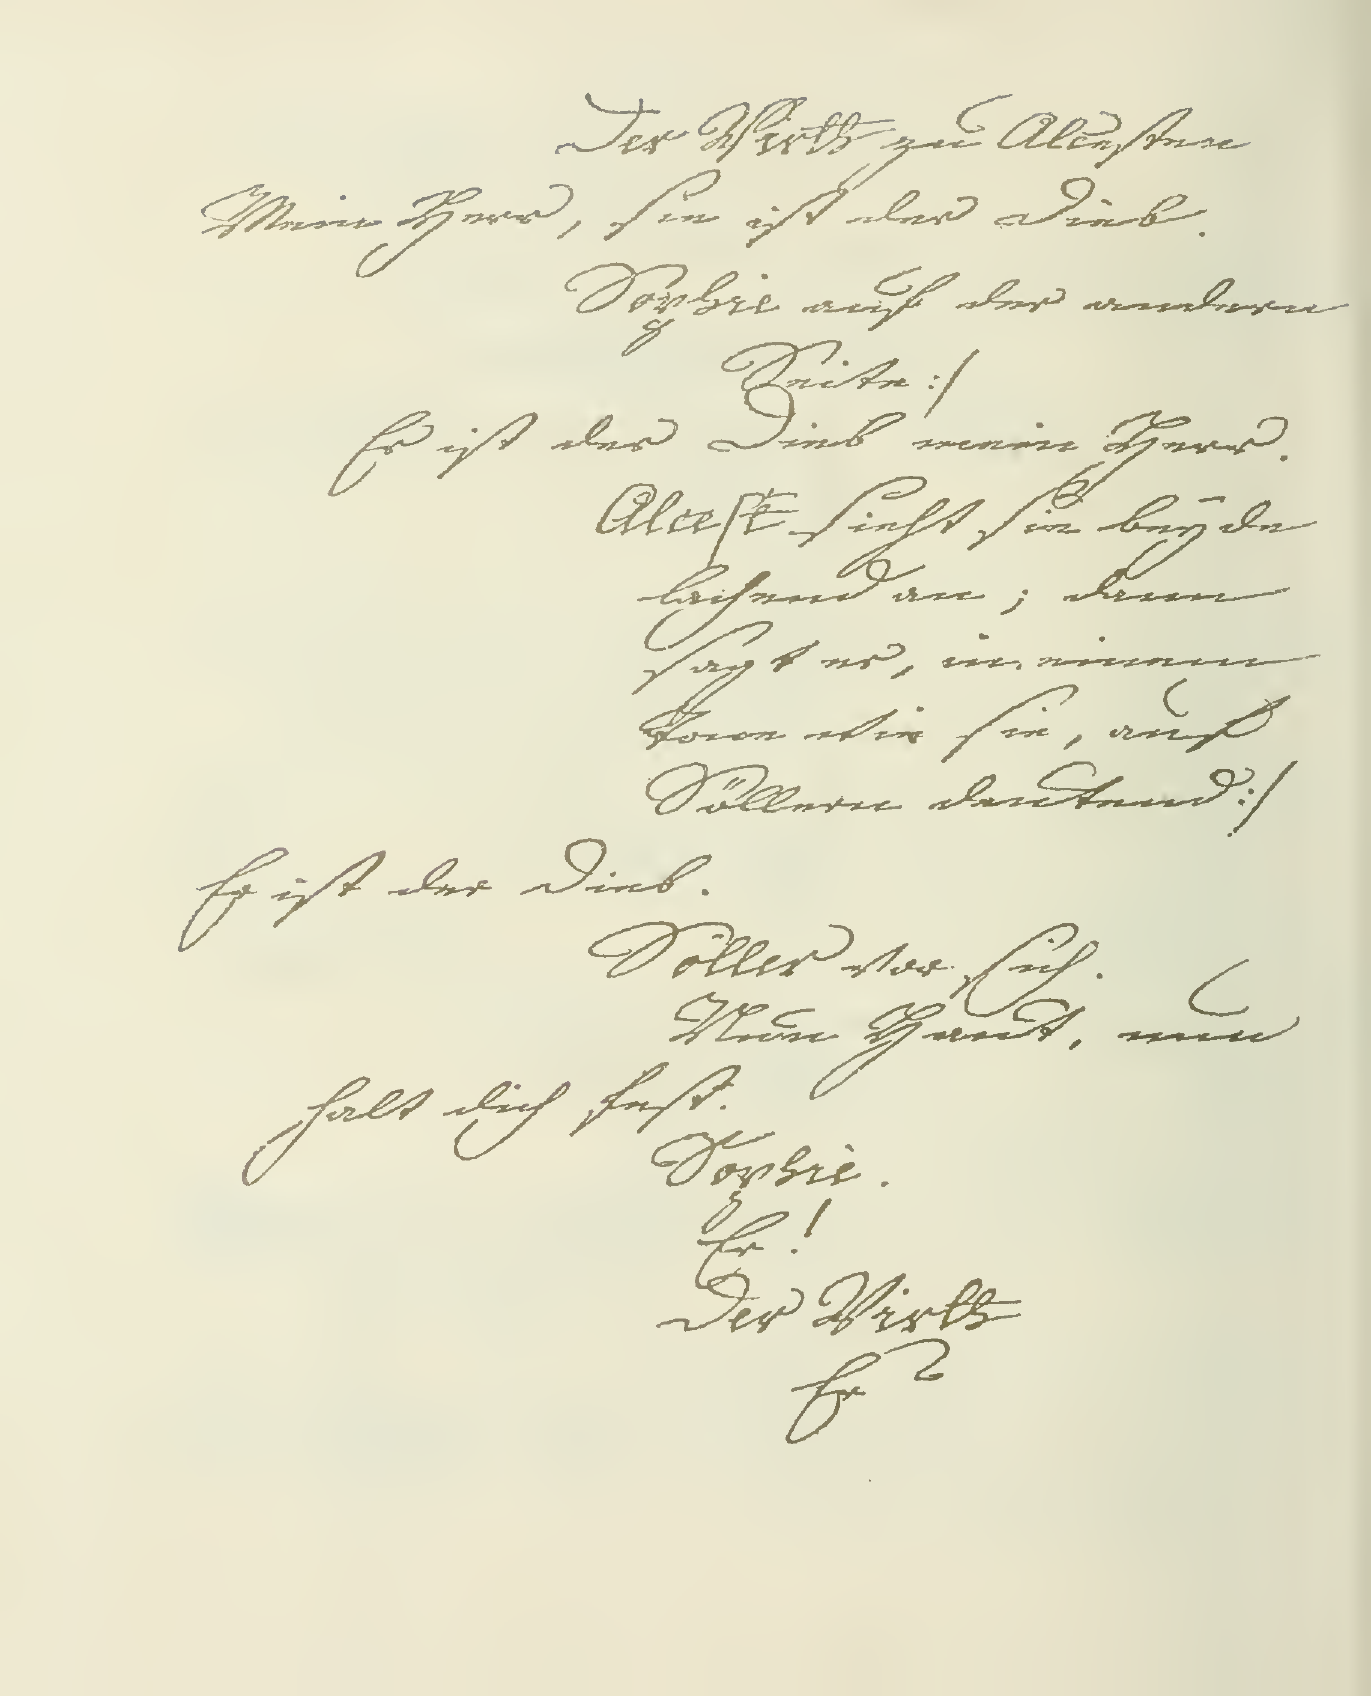 Der Wirth zu Alcesten
Mein Herr, sie ist der Dieb.
Sophie auf der andern
Seite :/
Er ist der Dieb mein Herr.
Alcest sieht sie beyde
lachend an; dann
sagt er, in einem
Tone wie sie, auf
Söllern deutend :/
Er ist der Dieb.
Söller vor sich.
Nun Haut, nun
halt dich fest.
Sophie.
Er!
Der Wirth
Er?